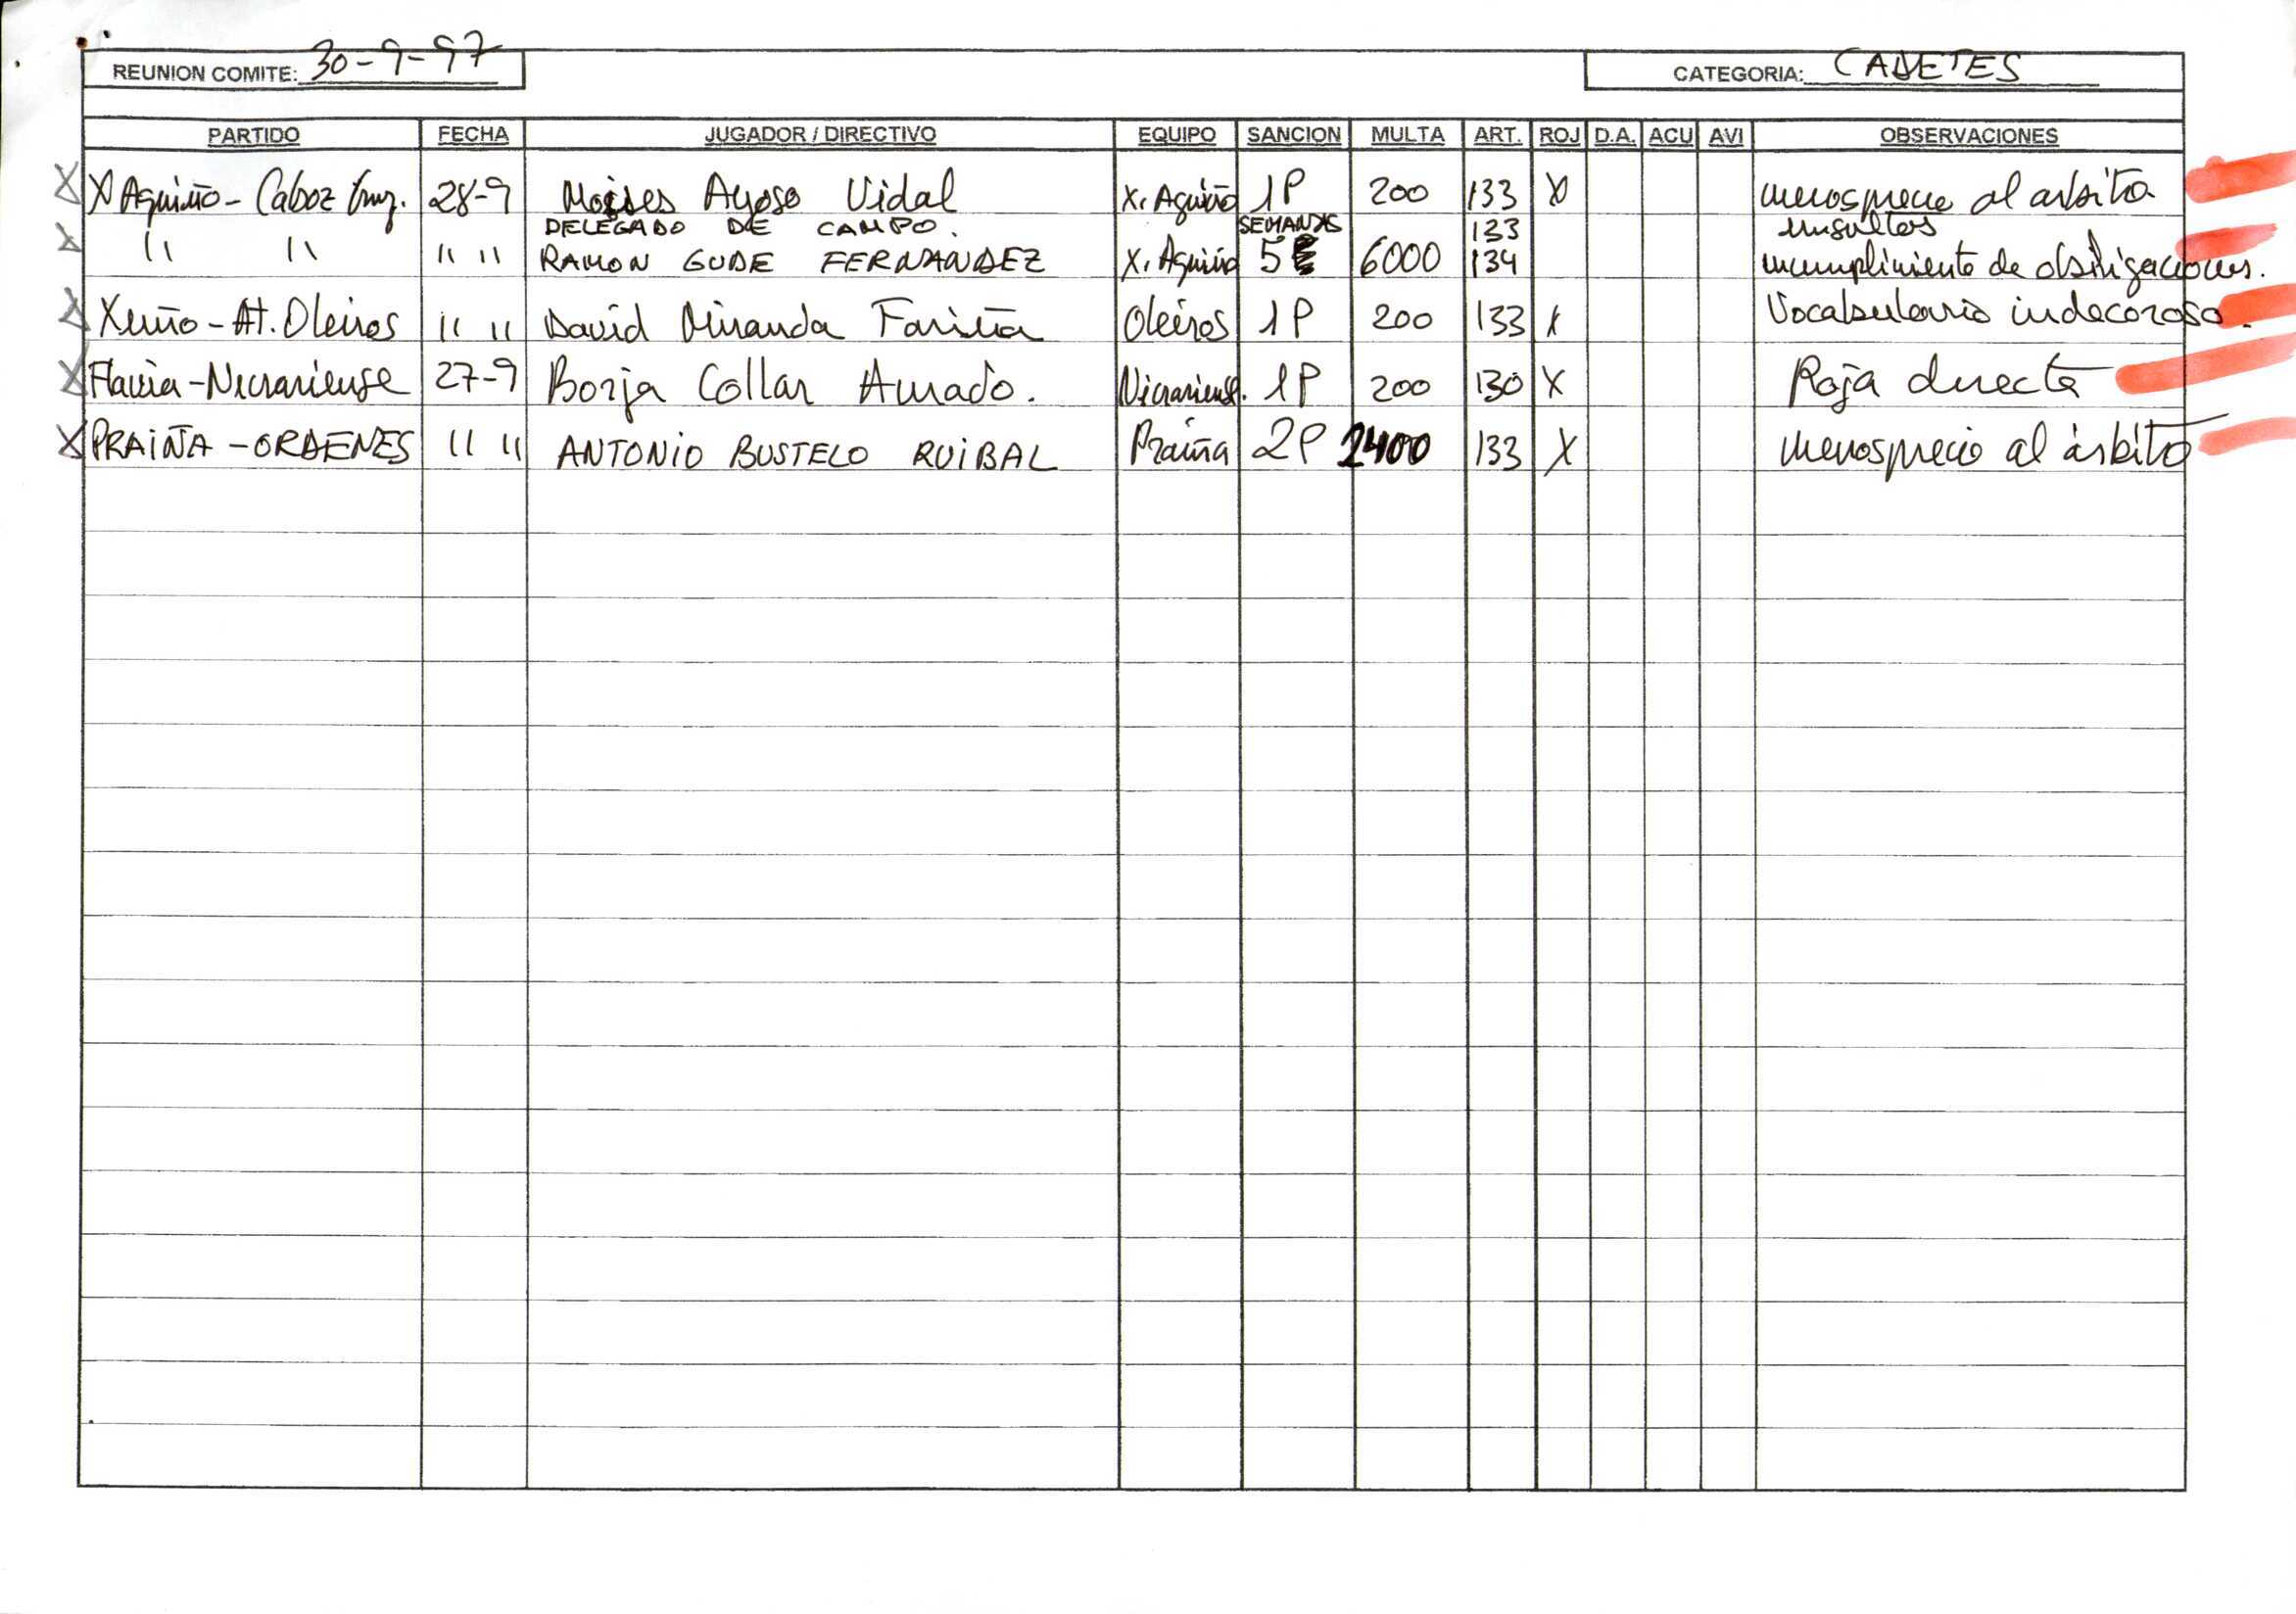 REUNION COMITE: 30-9-97 CATEGORIA: CADETES
PARTIDO FECHA JUGADOR / DIRECTIVO EQUIPO SANCION MULTA ART. ROJ D.A. ACU AVI OBSERVACIONES
X X Aguiño - Caboz Cruz. 28-9 Moises Ayoso Vidal X. Aguiño 1P 200 133 X menosprecio al arbitro
DELEGADO DE CAMPO. SEMANAS 133 insultos
X " " " " RAMON GUDE FERNANDEZ X. Aguiño 5 6000 134 incumplimiento de obligaciones.
X Xuño - At. Oleiros " " David Miranda Fariña Oleiros 1P 200 133 X Vocabulario indecoroso.
X Flavia - Nicrariense 27-9 Borja Collar Amado. Nicrariense. 1P 200 130 X Roja directa
X PRAIÑA - ORDENES " " ANTONIO BUSTELO RUIBAL Praiña 2P 2400 133 X menosprecio al árbitro